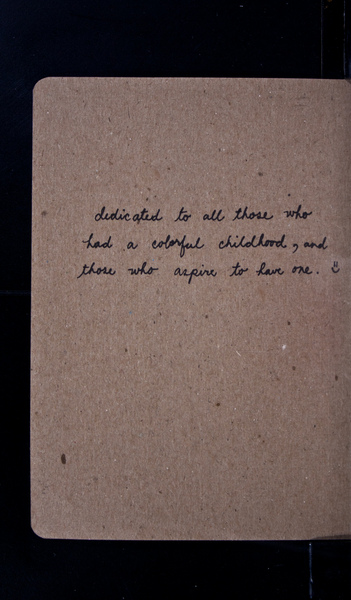 dedicated to all those who
had a colorful childhood, and
those who aspire to have one. :)